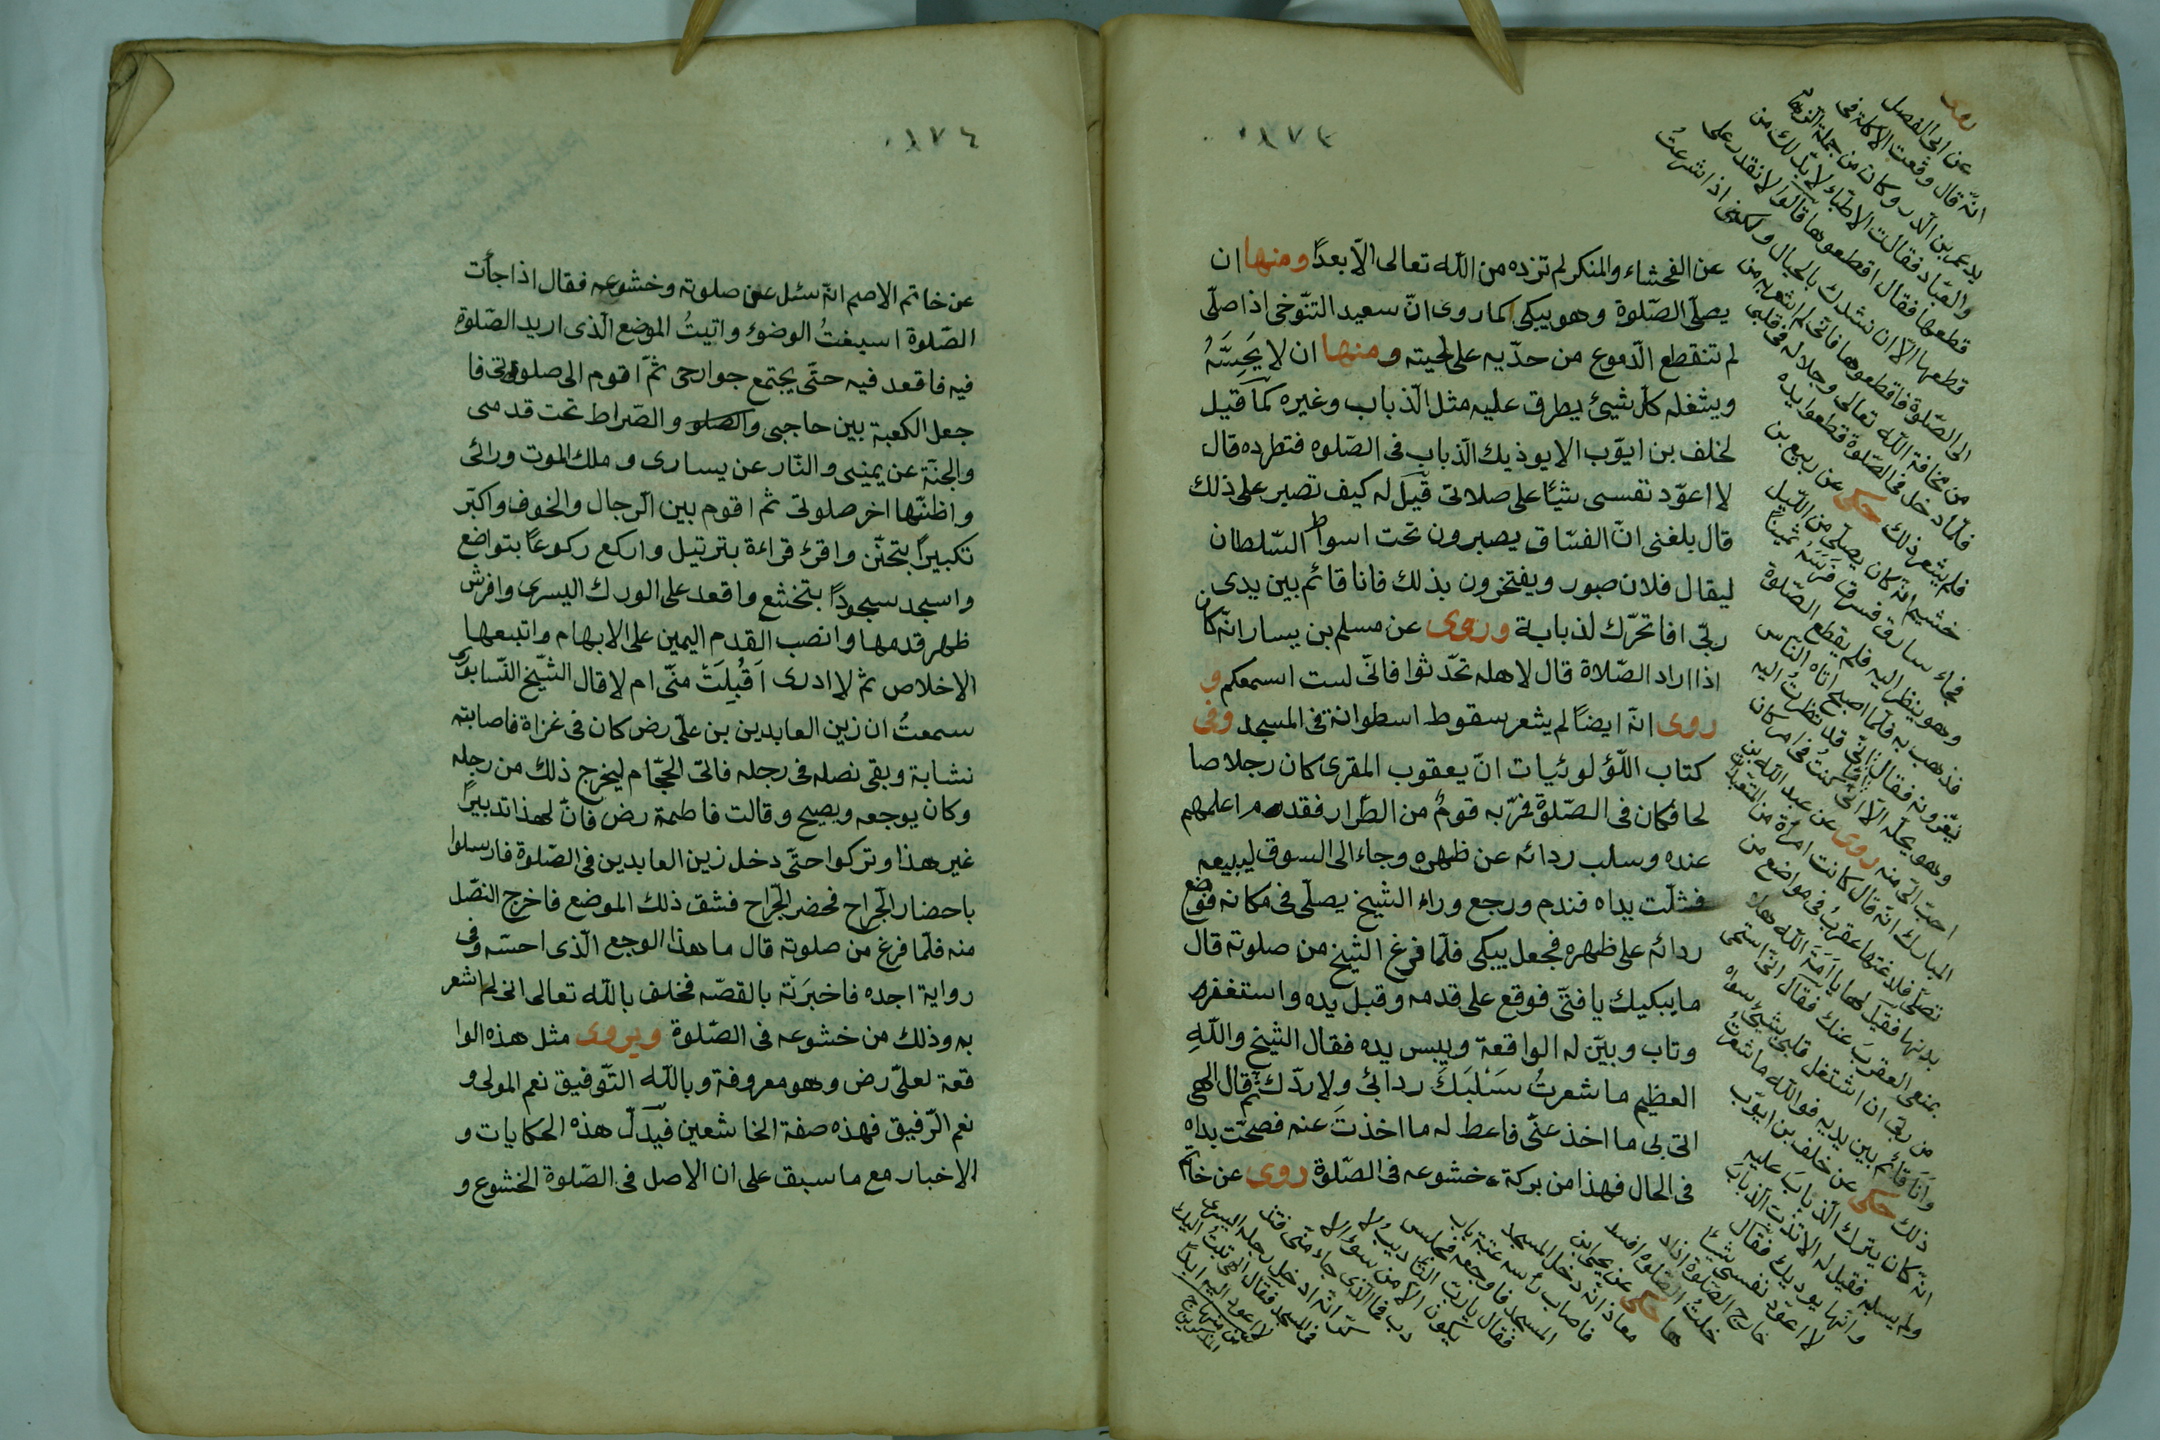 ٠٨٧٣
عن الفحشاء والمنكر لم تزده من الله تعالى الّا بعدًا ومنها ان
يصلّى الصّلوة وهو يبكى كما روى انّ سعيد التنّوخى اذا صلّى
لم تنقطع الدّموع من خدّيه على لحيته ومنها ان لا
ويشغله كلّ شيئ يطرق عليه مثل الذّباب وغيره كما قيل
لخلف بن ايوّب الا يوذيك الذباب فى الصّلوه فتطرده قال
لا اعوّد نفسى شيئًا على صلاتى قيل له كيف تصبر على ذلك
قال بلغنى انّ الفسّاق يصبرون تحت اسواط السّلطان
ليقال فلان صبور ويفتخرون بذلك فانا قائم بين يدى
ربّى افاتحرّك لذبابة وروى عن مسلم بن يسار انّه كان
اذا اراد الصّلاة قال لاهله تحدّثوا فانّى لست اسمعكم و
روى انّه ايضًا لم يشعر سقوط اسطوانة فى المسجد وفى
كتاب اللّؤلوئيات انّ يعقوب المقرى كان رجلا صا
لحا فكان فى الصّلوة فمرّ به قومٌ من الطّرار فقدم اعلمهم
عنده وسلب ردائه عن ظهره وجاء الى السوق ليبيعه
فشلّت يداه فندم ورجع وراء الشيخ يصلّى فى مكانه فوضع
ردائه على ظهره فجعل يبكى فلمّا فرغ الشيخ من صلوته قال
ما يبكيك يا فتى فوقع على قدمه وقبل يده واستغفره
وتاب وبيّن له الواقعة ويبس يده فقال الشيخ واللّهِ
العظيم ما شعرتُ سَلْبَكَ ردائى ولا ردّك ثم قال الهى
اتى لى ما اخذ عنّى فاعط له ما اخذتَ عنه فصحّت يداه
فى الحال فهذا من بركة خشوعه فى الصّلوة روى عن خاتم
روى
عن ابى الفضل
انّه قال وقعت الاكلة فى
يد عمر بن الدر وكان من جملة الزهاد
والعبّاد فقالت الاطبّاء لا بدّ لك من
قطعها فقال اقطعوها قالوا لا نقدر على
قطعها الّا ان نشدك بالحبال ولكن اذا شرعتُ
الى الصّلوة فاقطعوها فانّى لم اشعر به من
من مخافة اللّه تعالى وجلاله فى قلبى
فلمّا دخل فى الصّلوة قطعوا يده
فلم يشعر ذلك حكى عن ربيع بن
خشيم انّه كان يصلّى من اللّيل
فجاء سارق فسرق فَرَسَهُ ثمينًا
وهو ينظر اليه فلم يقطع الصّلوة
فذهب به فلمّا اصبح اتاه الناس
يعّزونه فقال انّى قد نظرتُ اليه
وهو يحلّه الّا انّى كنتُ فى امر كان
احبّ الىّ منه روى عن عبد اللّه بن
المبارك انّه قال كانت امرأة من
تصلّى فلدغتها عقربٌ فى مواضع من
بدنها فقيل لها يا اَمَةَ اللّه هلّا
يمنعى العقربَ عنك فقال انّى استحى
من ربّى ان اشتغل قلبى بشيئ سواه
وانَا قائمٌ بين يديه فو اللّه ما شعرتُ
ذلك حكى عن خلف بن ايوّب
انّه كان يترك الذّبابَ عليه
فقيل له الا تذبّ الذّبابَ
وانّها يوديك فقال
لا اعوّد نفسى شيئًا
خارج الصّلوة
الصّلوه افسد
ها حكى عن يحيى ابن
معاذ انّه دخل المسجد
فاصاب رأسه عتبة باب
المسجد فاوجعه فجلس
فقال يا ربّ
يكون الّا من سوء الا
دب فما الّذى جاء منّى فتذ
كّر انّه ادخل رجله اليسرى
فى المسجد فقال الهى تبتُ اليك
لا اعود اليه ابدًا
٠٨٧٤
عن خاتم الاصم انّه سئل عن صلوته وخشوعه فقال اذا جأت
الصّلوة اسبغتُ الوضوُ واتيتُ الموضع الّذى اريد الصّلوة
فيه فاقعد فيه حتّى يجتمع جوارحى ثمّ اقوم الى صلوتى فا
جعل الكعبة بين حاجبى والصّراط تحت قدمى
والجنّة عن يمينى والنّار عن يسارى وملك الموت ورائى
واظنّها اخر صلوتى ثم اقوم بين الرّجال والخوف واكبّر
تكبيرًا بتحنّن واقرئ قراءة بترتيل واركع ركوعًا بتواضع
واسجد سجودًا بتخشع واقعد على الورك اليسرى وافرش
ظهر قدمها وانصب القدم اليمين على الابهام واتبعها
الاخلاص ثم لا ادرى اَقُبِلَتْ منّى ام لا قال الشّيخ
سمعتُ ان زين العابدين بن علّى رض كان فى غزاة فاصابته
نشابة وبقى نصله فى رجله فاتىّ الحجّام ليخرج ذلك من رجله
وكان يوجعه ويصيح وقالت فاطمة رض فانّ لهذا تدبيرًا
غير هذا وتركوا حتّى دخل زين العابدين فى الصّلوة فارسلوا
باحضار الجّراح فحضر الجّراح فشق ذلك الموضع فاخرج النصّل
منه فلمّا فرغ من صلوته قال ما هذا الوجع الّذى احسّه وفى
رواية اجده فاخبرَتْه بالقصّه فخلف باللّه تعالى انى لم اشعر
به وذلك من خشوعه فى الصّلوة ويروى مثل هذه الوا
قعة لعلىّ رض وهو معروفة وباللّه التّوفيق نعم المولى و
نعم الرّفيق فهذه صفة الخاشعين فيدلّ هذه الحكايات و
الاخبار مع ما سبق على ان الاصل فى الصّلوة الخشوع و